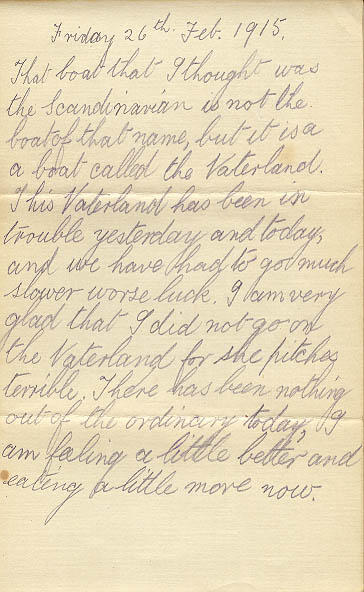 Friday 26th. Feb. 1915.
That boat that I thought was
the Scandinavian is not the
boat of that name, but it is a
a boat called the Vaterland.
This Vaterland has been in
trouble yesterday and today,
and we have had to go much
slower worse luck. I am very
glad that I did not go on
the Vaterland for she pitches
terrible. There has been nothing
out of the ordinary today, I
am faling a little better and
eating a little more now.